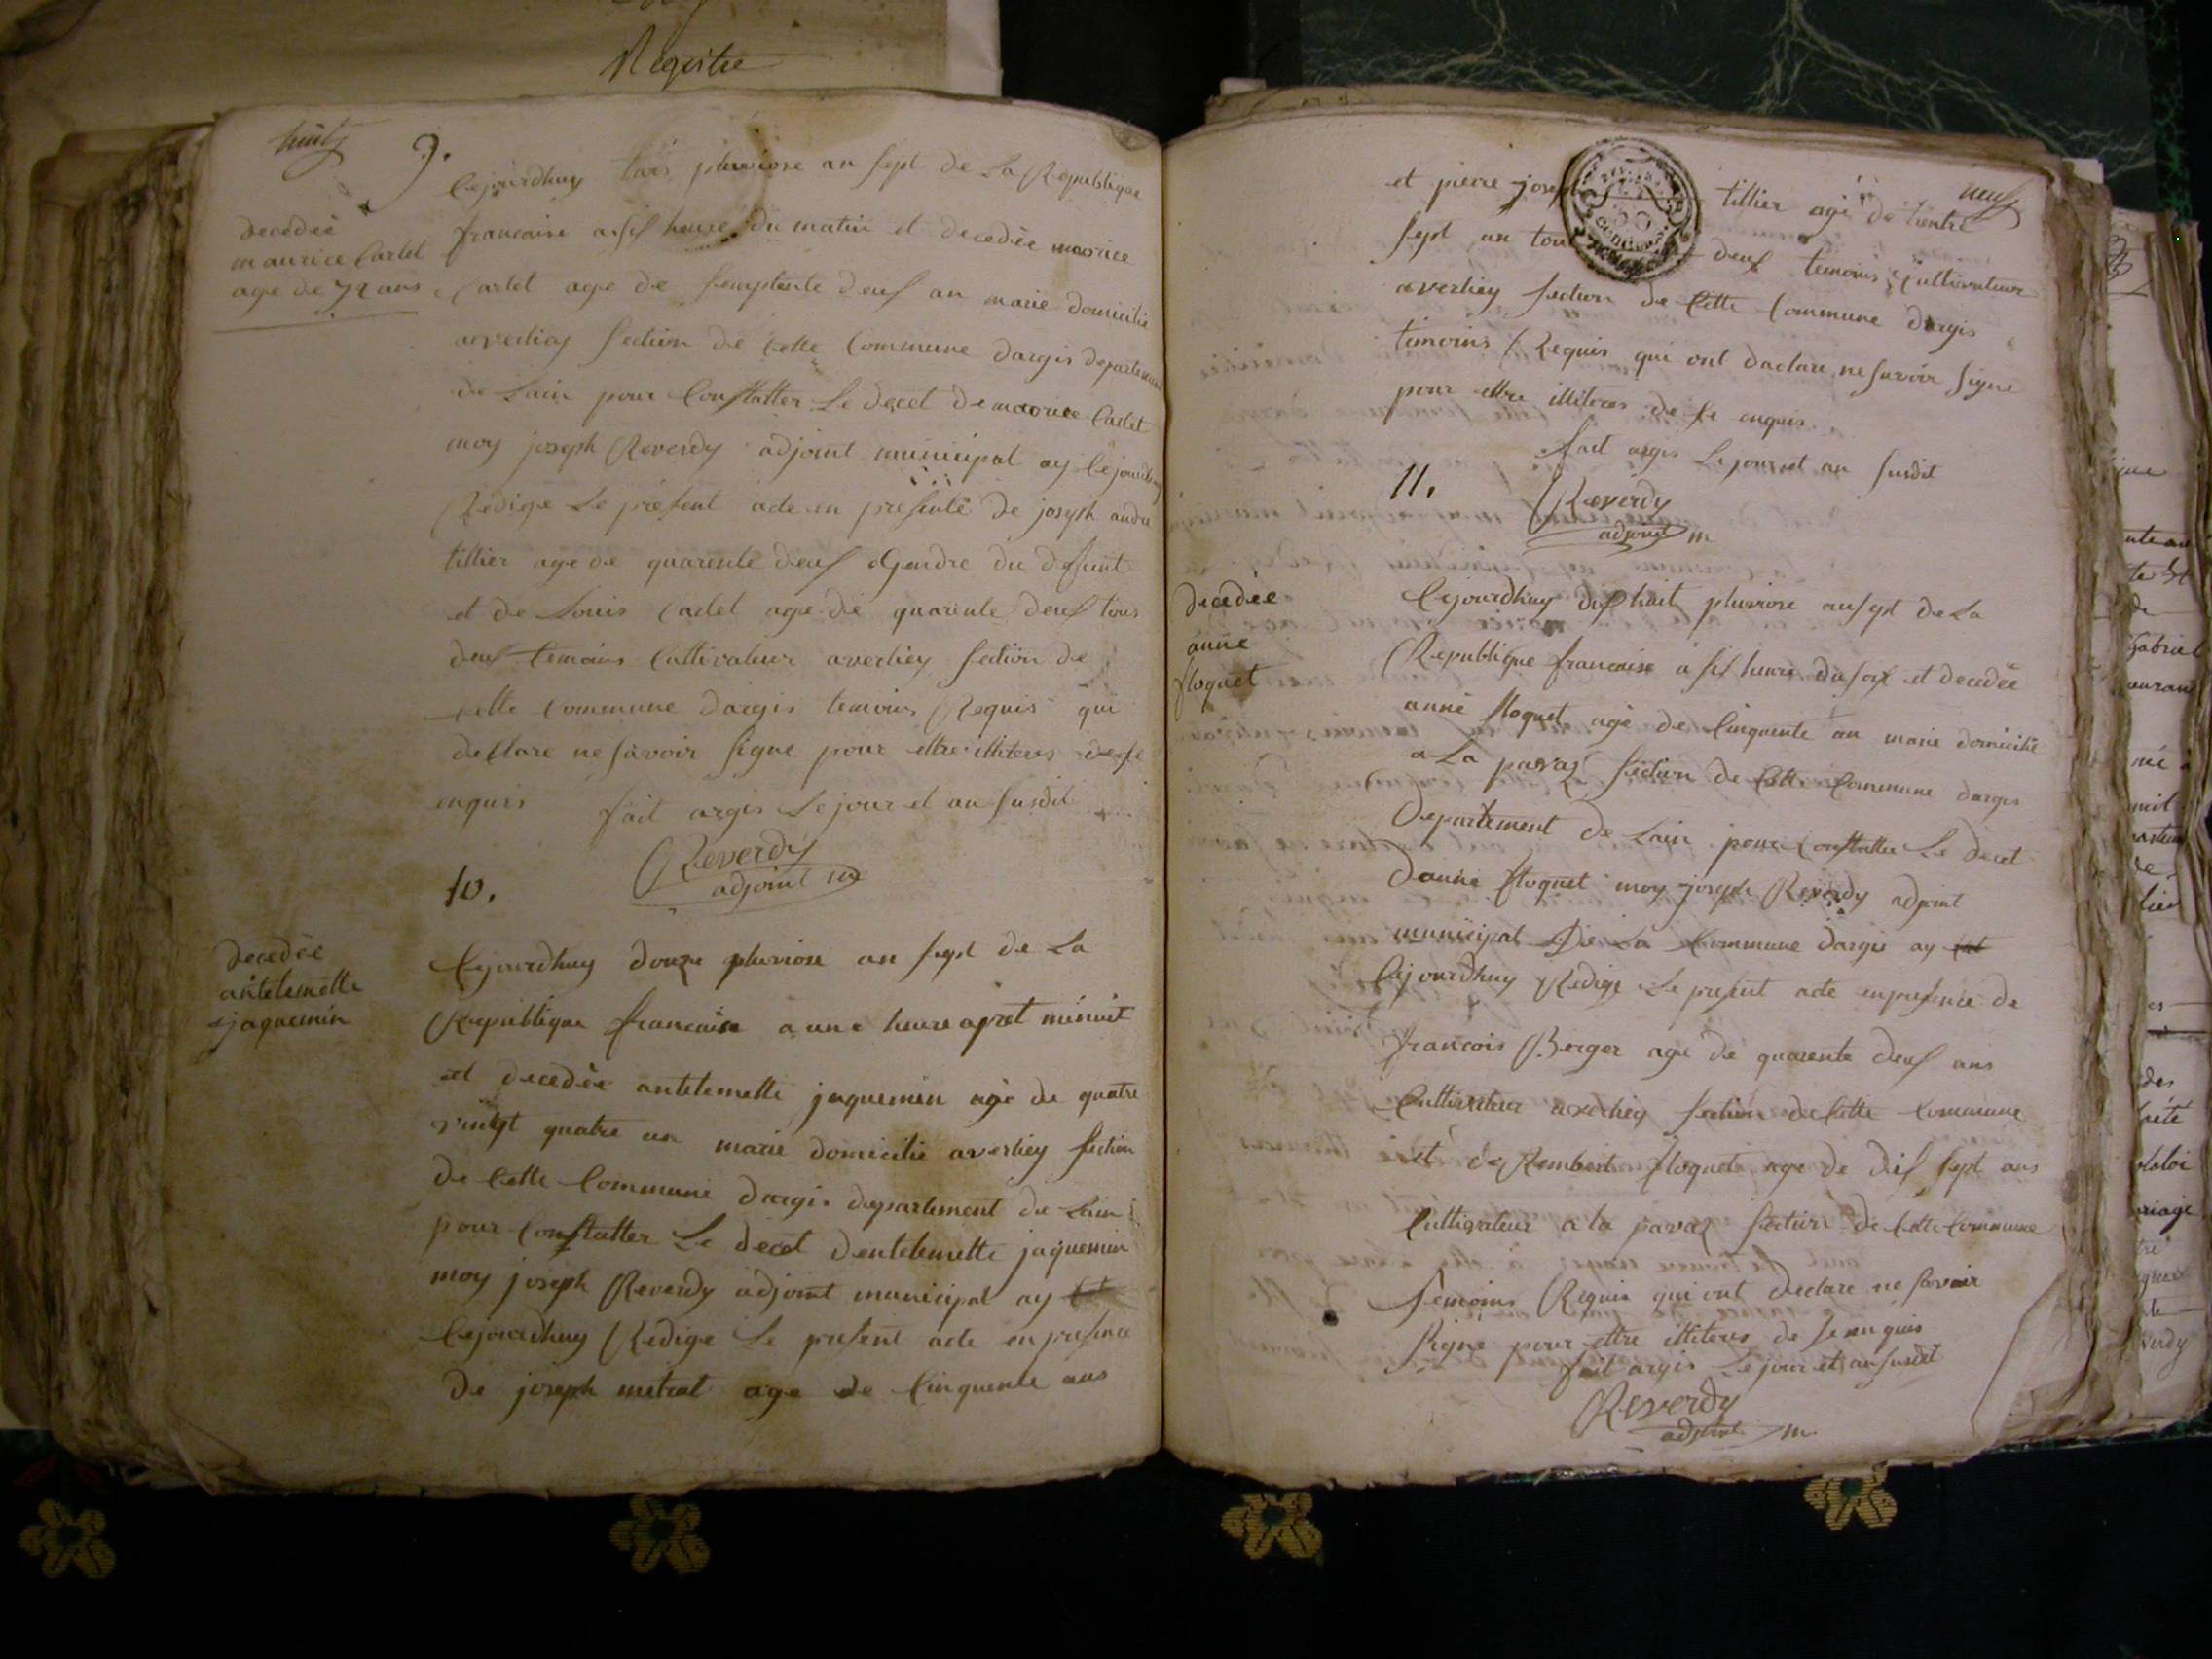 Registre
huit
9.
decedée
maurice Cartet
age de 72 ans
Cejourdhuy trois pluviose an sept de La Republique
francaise a six heure du matin et decedée maorice
Cartet age de semptente deux an marie domicilie
averliey section de cette Commune dargis departement
de Lain pour Constatter Le decet de maorice Cartet
moy joseph Reverdy adjoint municipal ay Cejourdhuy
Redige Le present acte en presente de joseph andre
tillier age de quarente deux Gendre du defunt
et de Louis Cartet age de quarente deux tous
deux temoins Cultivateur averliey section de
cette Commune dargis temoins Requis qui
declare ne savoir signe pour ettre illiteres de se
enquis fait argis Le jour et an susdit
Reverdy
adjoint m
10.
decedée
antelemette
jaquemin
Cejourdhuy douze pluviose an sept de La
Republique francaise a une heure apret minuit
et decedée antelemette jaquemin agé de quatre
vingt quatre an marie domicilie averliey section
de Cette Commune dargis departement de Lain
pour Constatter Le decet dentelemette jaquemin
moy joseph Reverdy adjoint municipal ay
Cejourdhuy Redige Le present acte en presence
de joseph mitrat age de Cinquente ans
neuf
et pierre joseph tillier agé de trente
sept an tous deux temoins Cultivateur
averliey section de Cette Commune dargis
temoins Requis qui ont daclare ne savoir signe
pour ettre illiteres de se enquis
fait argis Le jour et an susdit
11.
Reverdy
adjoint m
decedée
anne
floquet
Cejourdhuy dix huit pluviose an sept de La
Republique francaise a six heure du soir et decedée
anne floquet agé de Cinquente an marie domicilié
a La pavaz section de Cette Commune dargis
Departement de Lain pour Constatter Le decet
danne floquet moy joseph Reverdy adjoint
municipal De La Commune dargis ay
Cejourdhuy Redige Le present acte en presence de
francois Berger age de quarente deux ans
Cultivateur averliey section de Cette Commune
et de Rembert floquet age de dix sept ans
Cultivateur a la pavaz section de Cette Commune
temoins Requis qui ont declare ne savoir
signe pour ettre illiteres de se enquis
fait argis Le jour et an susdit
Reverdy
adjoint m